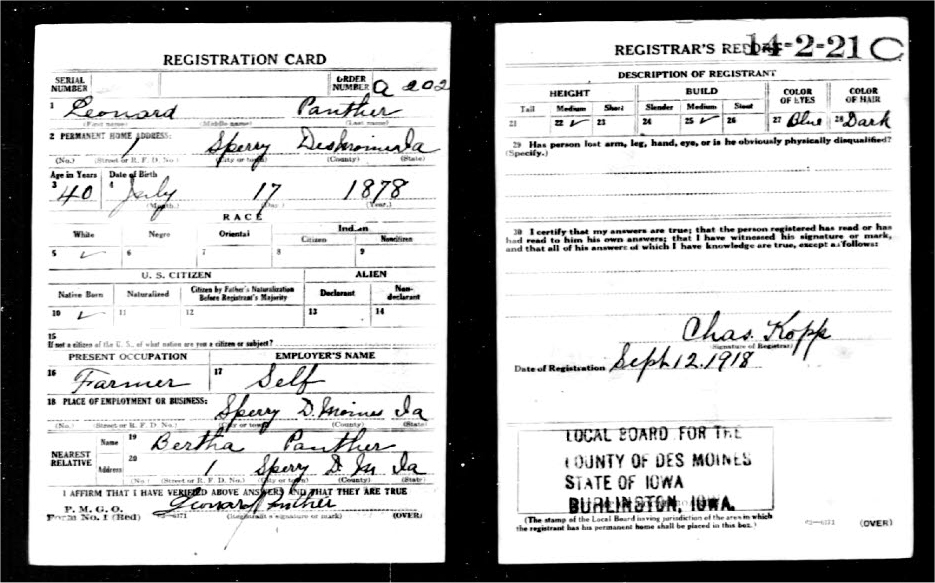 REGISTRATION CARD
SERIAL NUMBER
ORDER NUMBER A 202
1 Leonard Panther
(First name) (Middle name) (Last name)
2 PERMANENT HOME ADDRESS:
1 Sperry Desmoines Ia
(No.) (Street or R. F. D. No.) (City or town) (County) (State)
Age in Years Date of Birth
3 40 4 July 17 1878
(Month.) (Day.) (Year.)
RACE
White Negro Oriental Indian
Citizen Noncitizen
5 ✓ 6 7 8 9
U. S. CITIZEN ALIEN
Native Born Naturalized Citizen by Father's Naturalization Before Registrant's Majority Declarant Non-declarant
10 ✓ 11 12 13 14
15
If not a citizen of the U. S., of what nation are you a citizen or subject?
PRESENT OCCUPATION EMPLOYER'S NAME
16 Farmer 17 Self
18 PLACE OF EMPLOYMENT OR BUSINESS:
Sperry D. Moines Ia
(No.) (Street or R. F. D. No.) (City or town) (County) (State)
NEAREST RELATIVE
Name 19 Bertha Panther
Address 20 1 Sperry D. M Ia
(No.) (Street or R. F. D. No.) (City or town) (County) (State)
I AFFIRM THAT I HAVE VERIFIED ABOVE ANSWERS AND THAT THEY ARE TRUE
P. M. G. O.
Form No. 1 (Red) Leonard Panther
(Registrant's signature or mark) (OVER)
REGISTRAR'S REPORT 14-2-21 C
DESCRIPTION OF REGISTRANT
HEIGHT BUILD COLOR OF EYES COLOR OF HAIR
Tall Medium Short Slender Medium Stout
21 22 ✓ 23 24 25 ✓ 26 27 Blue 28 Dark
29 Has person lost arm, leg, hand, eye, or is he obviously physically disqualified?
(Specify.)
30 I certify that my answers are true; that the person registered has read or has
had read to him his own answers; that I have witnessed his signature or mark,
and that all of his answers of which I have knowledge are true, except as follows:
Chas. Kopp
(Signature of Registrar)
Date of Registration Sept 12. 1918
LOCAL BOARD FOR THE
COUNTY OF DES MOINES
STATE OF IOWA
BURLINGTON, IOWA.
(The stamp of the Local Board having jurisdiction of the area in which
the registrant has his permanent home shall be placed in this box.)
(OVER)